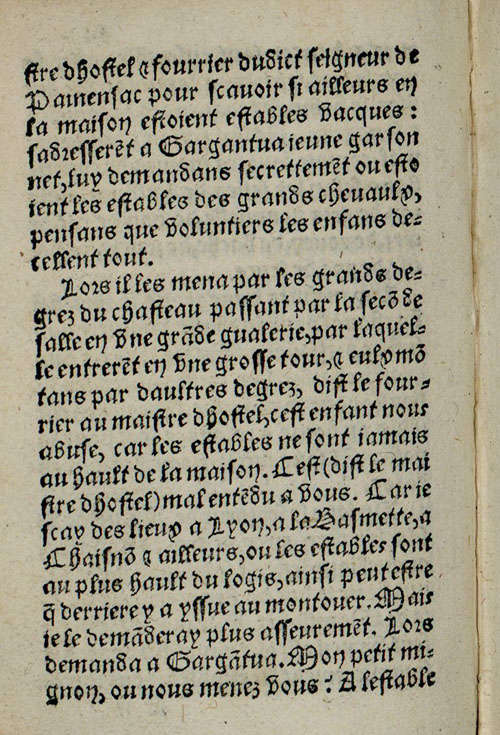 stre dhostel & fourrier dudict seigneur de
Painensac pour scauoir si ailleurs en
la maison estoient estables vacques:
sadresserēt a Gargantua ieune garson
net, luy demandans secrettemēt ou esto
ient les estables des grands cheuaulx,
pensans que voluntiers les enfans de=
cellent tout.
Lors il les mena par les grands de=
grez du chasteau passant par la secōde
salle en vne grāde gualerie, par laquel=
le entrerēt en vne grosse tour, & eulx mō
tans par daultres degrez, dist le four=
rier au maistre dhostel, cest enfant nous
abuse, car les estables ne sont iamais
au hault de la maison. Cest (dist le mai
stre dhostel) mal entēdu a vous. Car ie
scay des lieux a Lyon, a la Basmette, a
Chaisnō & ailleurs, ou les estables sont
au plus hault du logis, ainsi peut estre
q̄ derriere y a yssue au montouer. Mais
ie le demāderay plus asseuremēt. Lors
demanda a Gargātua. Mon petit mi=
gnon, ou nous menez vous? A lestable